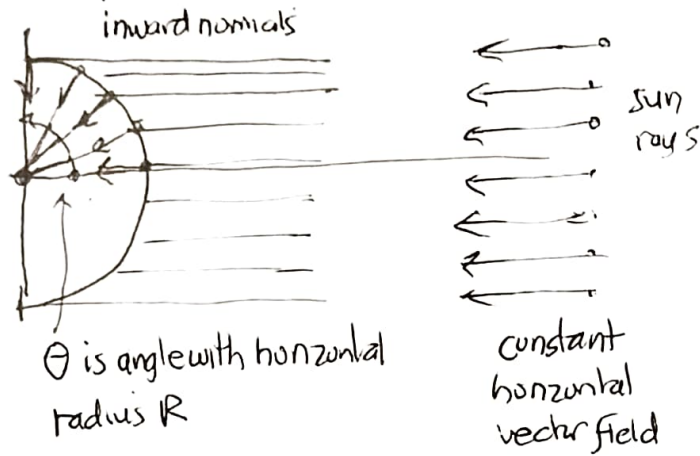 inward normals
sun
rays
θ is angle with horizontal
radius R
constant
horizontal
vector field